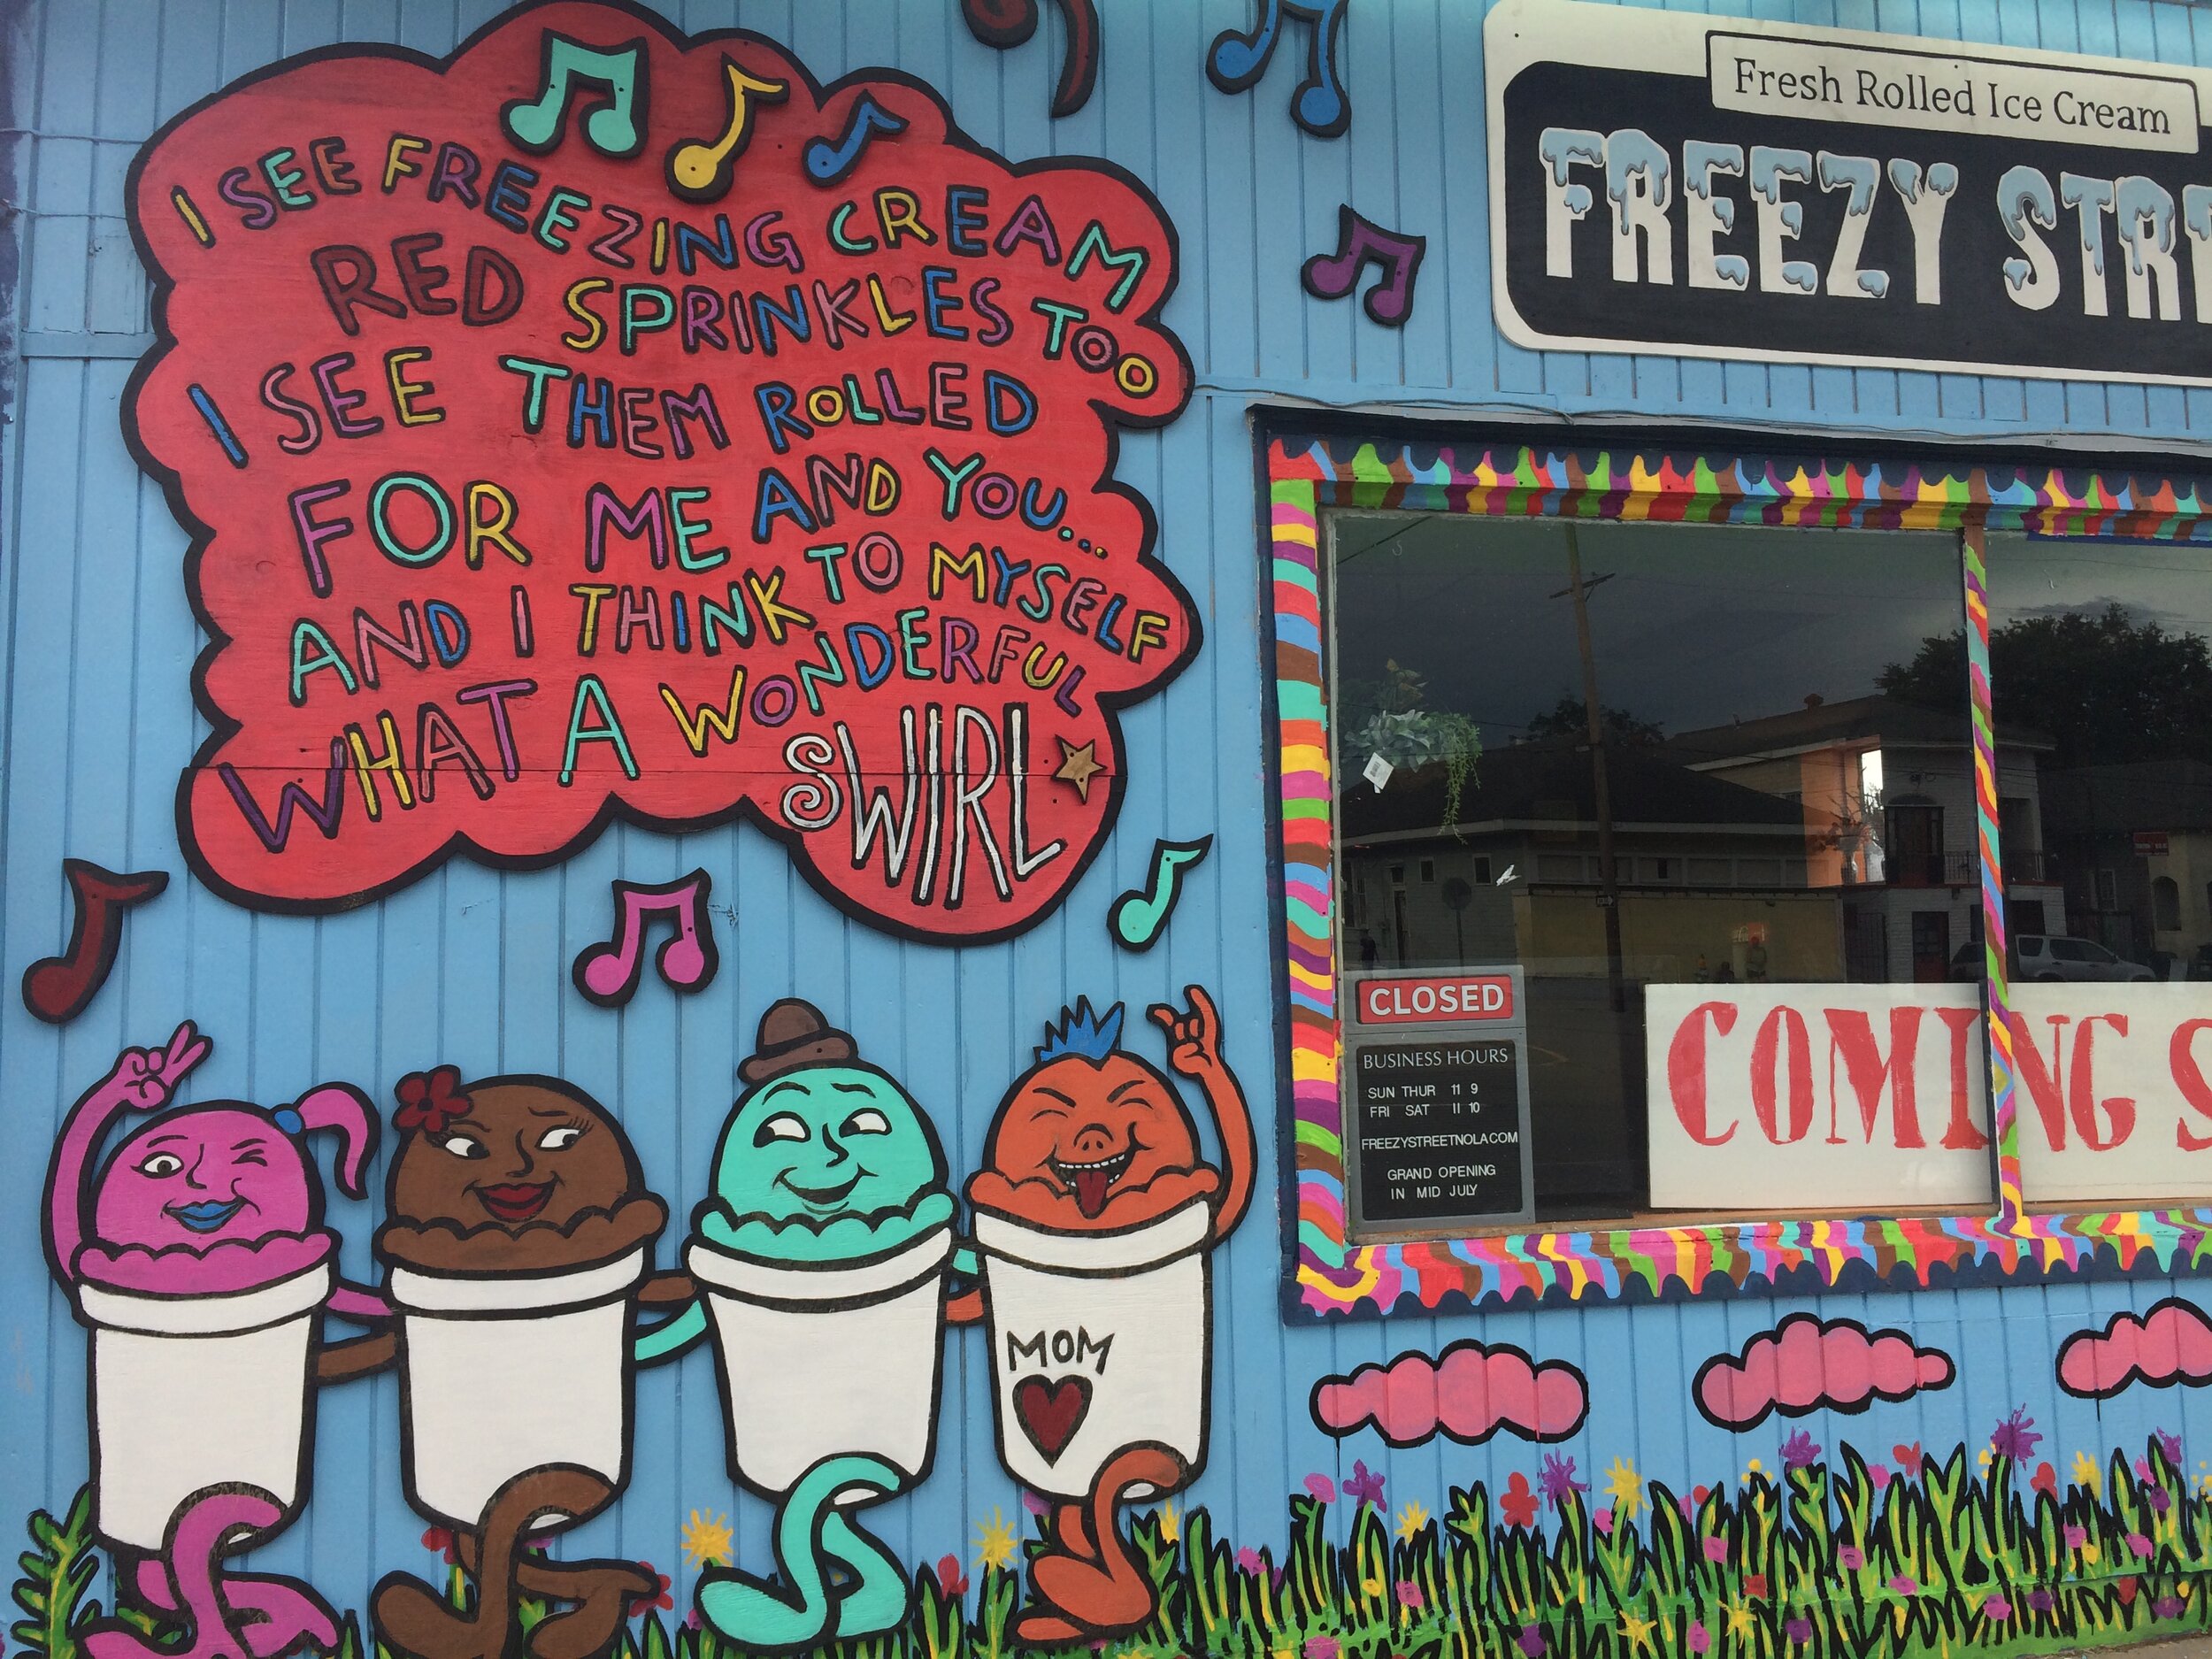 I SEE FREEZING CREAM
RED SPRINKLES TOO
I SEE THEM ROLLED
FOR ME AND YOU...
AND I THINK TO MYSELF
WHAT A WONDERFUL
SWIRL
Fresh Rolled Ice Cream
FREEZY STRE
CLOSED
BUSINESS HOURS
SUN THUR 11 9
FRI SAT 11 10
FREEZYSTREETNOLA.COM
GRAND OPENING
IN MID JULY
COMING S
MOM